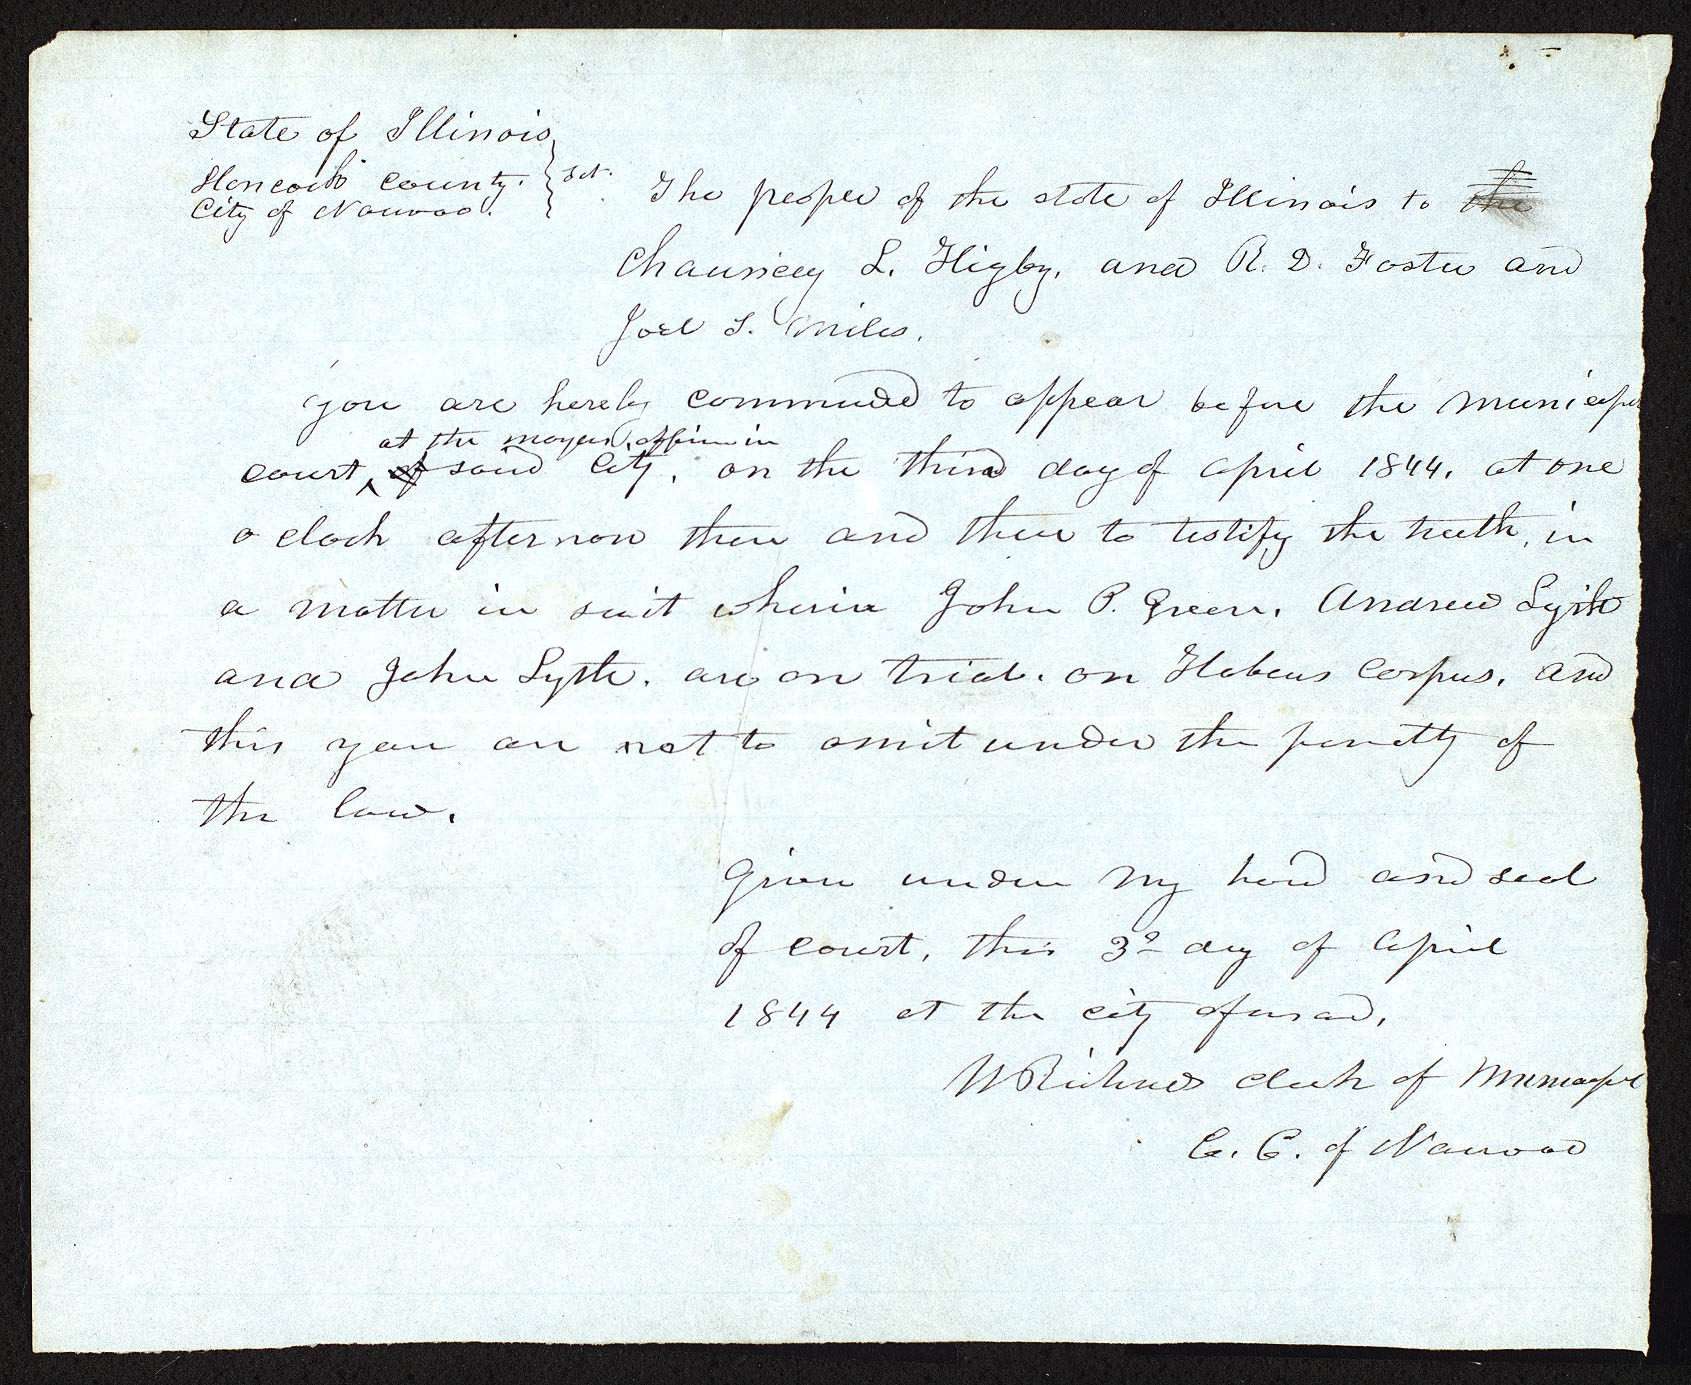 State of Illinois
Hancock County. } Sct.
City of Nauvoo.
The people of the state of Illinois to the
Chauncey L. Higby, and R. D. Foster and
Joel S. Miles.
you are hereby commanded to appear before the municipal
at the mayors office in
court, of said City, on the third day of april 1844, at one
o clock afternoon then and there to testify the truth, in
a matter in suit wherein John P. Green, Andrew Lytle
and John Lytle. are on trial. on Habeus Corpus. and
this you are not to omit under the penalty of
the law.
Given under my hand and seal
of court, this 3d day of April
1844 at the city aforsaid.
W Richards clerk of Municipal
C. C. of Nauvoo